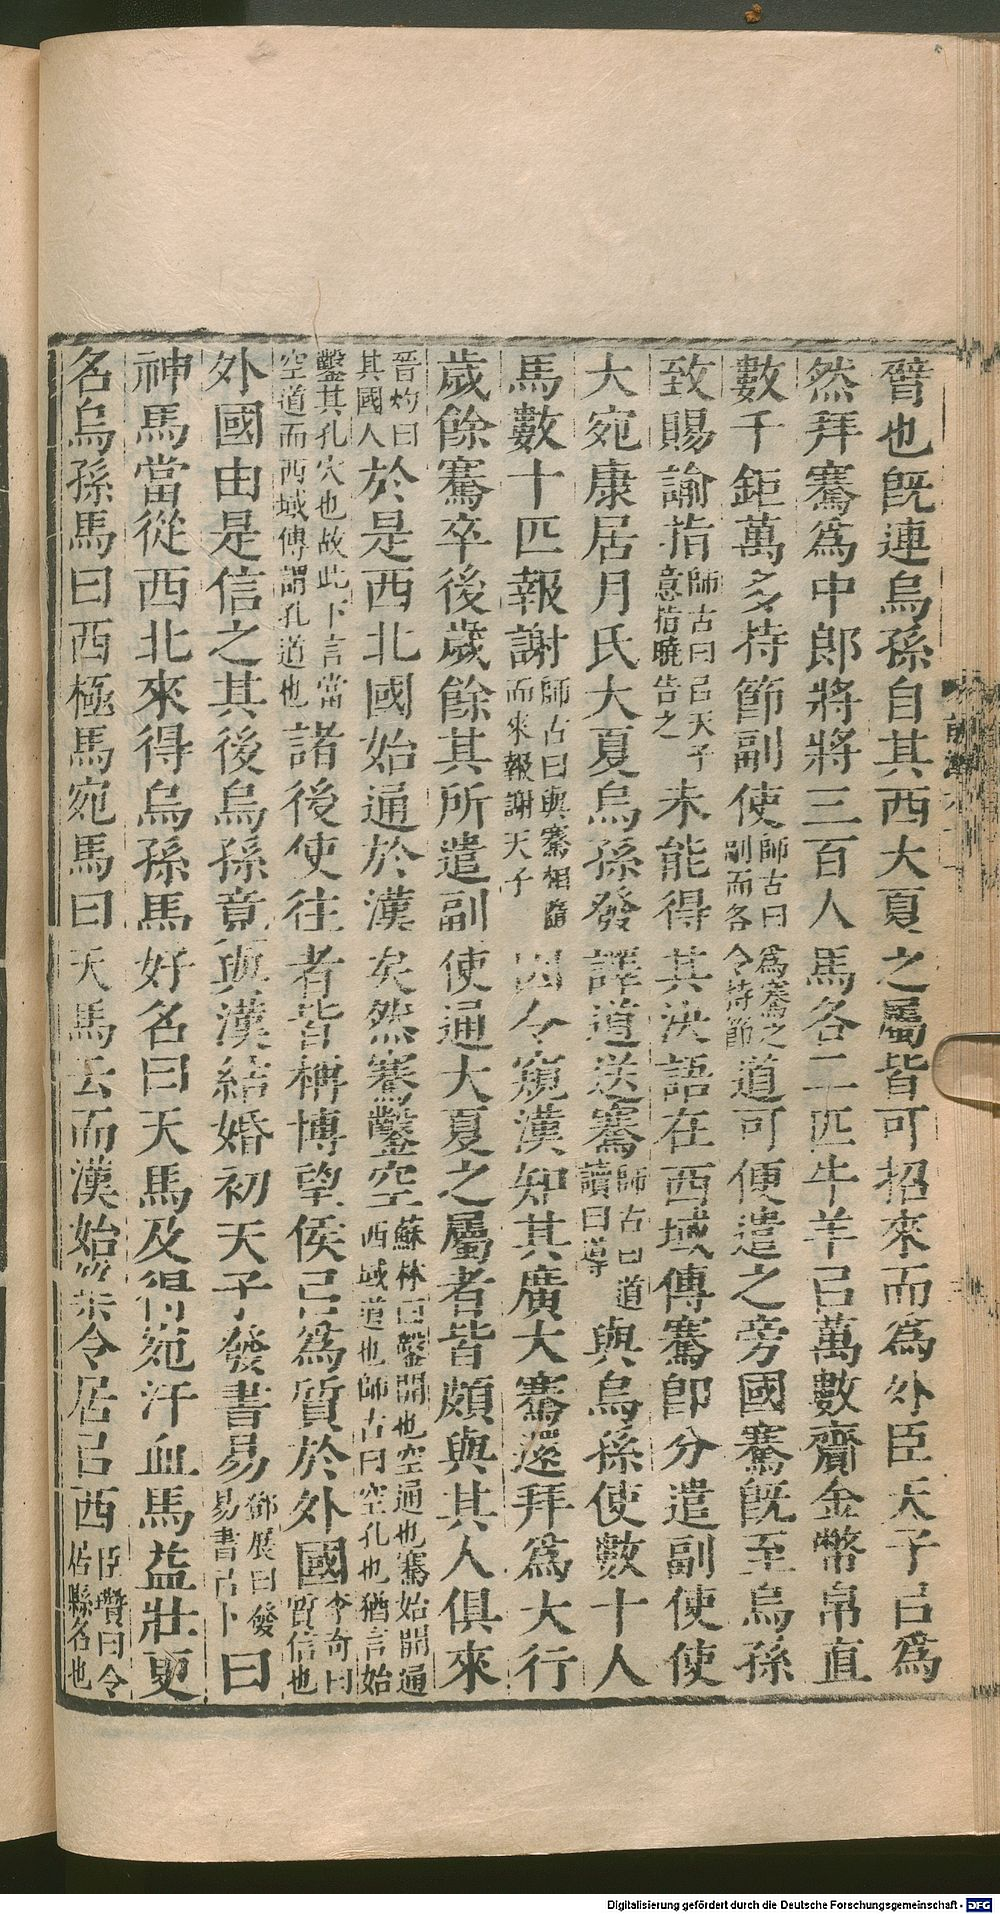 臂也旣連烏孫自其西大夏之屬皆可招來而爲外臣天子㠯爲
然拜騫爲中郎將將三百人馬各二匹牛羊㠯萬數齎金幣帛直
數千鉅萬多持節副使師古曰爲騫之副而各令持節道可便遣之旁國騫旣至烏孫
致賜諭指師古曰㠯天子意指曉告之未能得其決語在西域傳騫即分遣副使使
大宛康居月氏大夏烏孫發譯道送騫師古曰道讀曰導與烏孫使數十人
馬數十匹報謝師古曰與騫相隨而來報謝天子因令窺漢知其廣大騫還拜爲大行
歲餘騫卒後歲餘其所遣副使通大夏之屬者皆頗與其人俱來
晉灼曰其國人於是西北國始通於漢矣然騫鑿空蘇林曰鑿開也空通也騫始開通西域道也師古曰空孔也猶言始
鑿其孔穴也故此下言當空道而西域傳謂孔道也諸後使往者皆稱博望侯㠯爲質於外國李奇曰質信也
外國由是信之其後烏孫竟與漢結婚初天子發書易鄧展曰發易書㠯卜曰
神馬當從西北來得烏孫馬好名曰天馬及得宛汗血馬益壯更
名烏孫馬曰西極馬宛馬曰天馬云而漢始築令居㠯西臣瓚曰令居縣名也
前漢
Digitalisierung gefördert durch die Deutsche Forschungsgemeinschaft - DFG